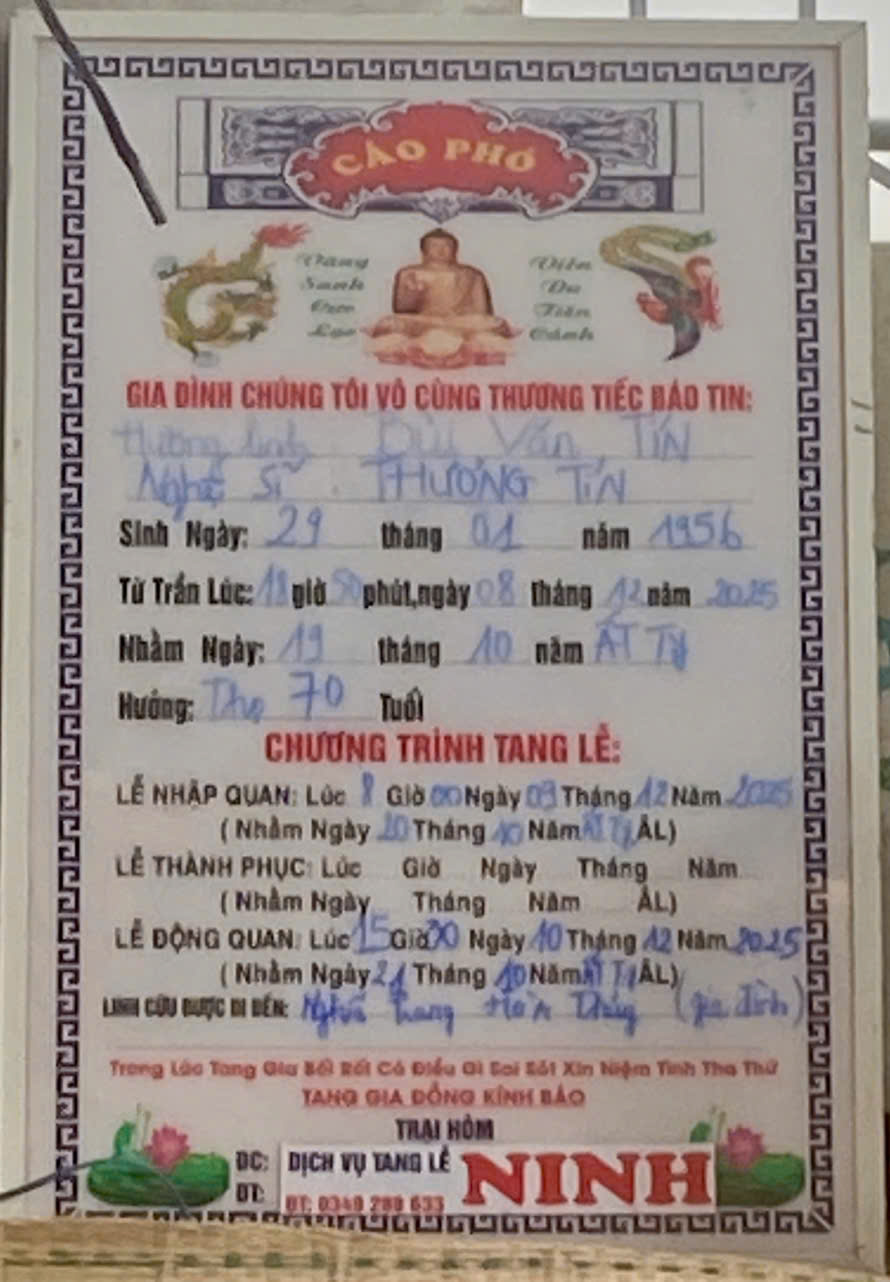 CÁO PHÓ
Vãng
Sanh
Cực
Lạc
Diên
Du
Tiên
Cảnh
GIA ĐÌNH CHÚNG TÔI VÔ CÙNG THƯƠNG TIẾC BÁO TIN:
Hương linh Bùi Văn TÍN
Nghệ Sĩ . THƯƠNG TÍN
Sinh Ngày: 29 tháng 01 năm 1956
Từ Trần Lúc: 18 giờ 50 phút,ngày 08 tháng 12 năm 2025
Nhằm Ngày: 19 tháng 10 năm ẤT TỴ
Hưởng: Thọ 70 Tuổi
CHƯƠNG TRÌNH TANG LỄ:
LỄ NHẬP QUAN: Lúc 8 Giờ 00 Ngày 09 Tháng 12 Năm 2025
( Nhằm Ngày 20 Tháng 10 Năm ẤT TỴ ÂL)
LỄ THÀNH PHỤC: Lúc Giờ Ngày Tháng Năm
( Nhằm Ngày Tháng Năm ÂL)
LỄ ĐỘNG QUAN: Lúc 15 Giờ 30 Ngày 10 Tháng 12 Năm 2025
( Nhằm Ngày 21 Tháng 10 Năm ẤT TỴ ÂL)
LINH CỮU ĐƯỢC DI ĐẾN: Nghĩa Trang (gia đình)
Trong Lúc Tang Gia Bối Rối Có Điều Gì Sai Sót Xin Niệm Tình Tha Thứ
TANG GIA ĐỒNG KÍNH BÁO
TRẠI HÒM
ĐC: DỊCH VỤ TANG LỄ NINH
ĐT:
ĐT: 0349 289 633